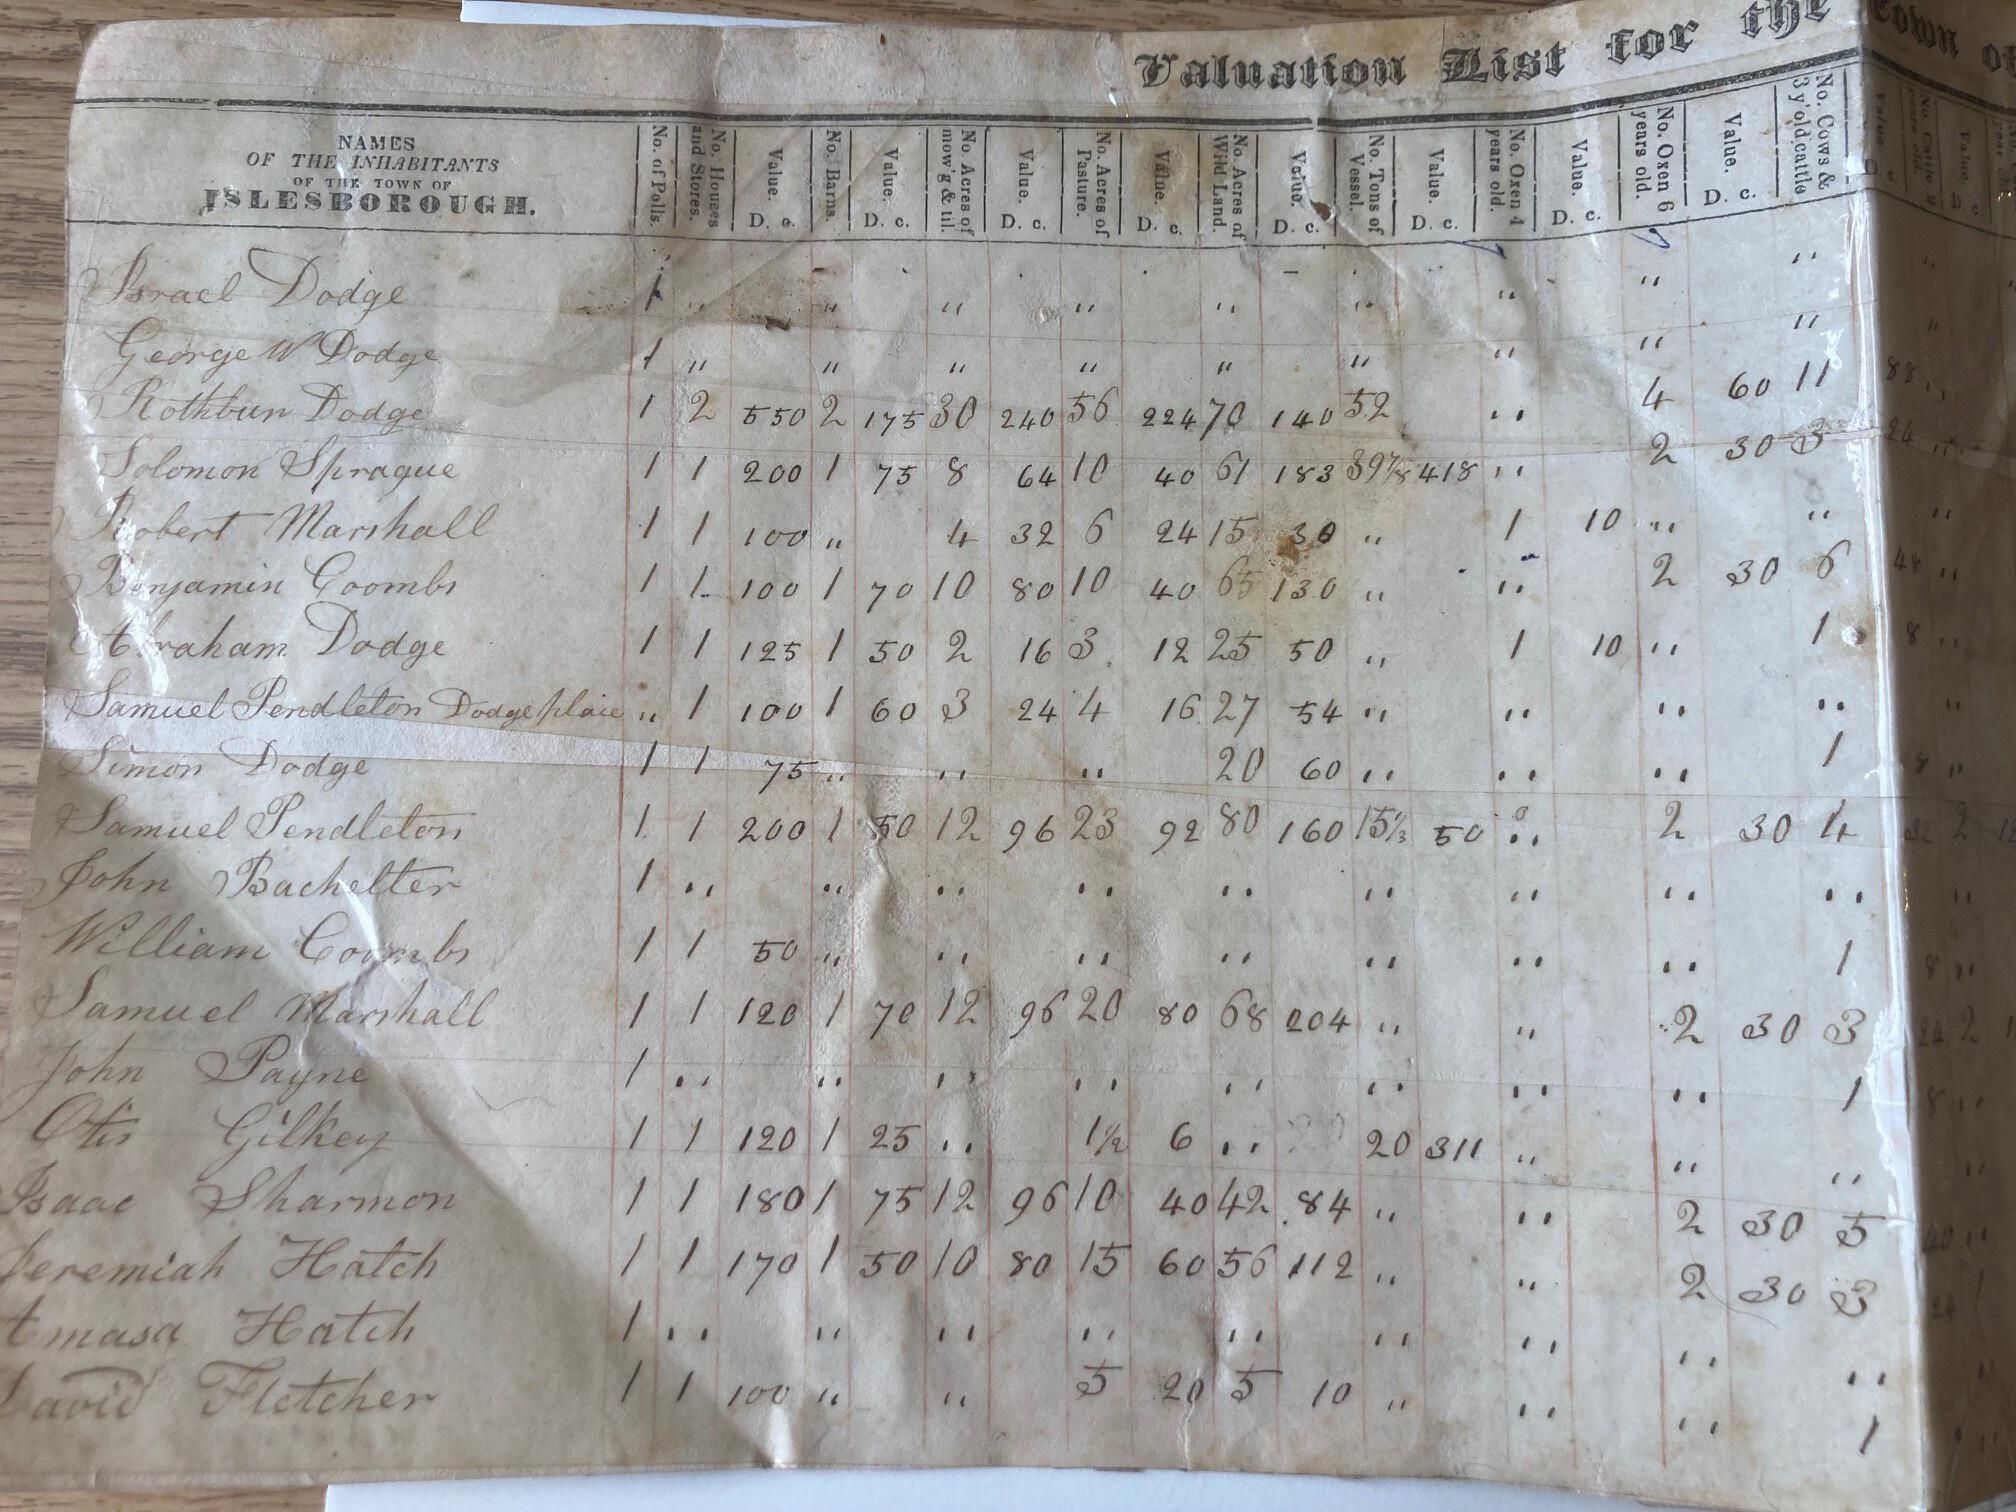 Valuation List for the Town of
NAMES OF THE INHABITANTS OF THE TOWN OF ISLESBOROUGH. No. of Polls. No. Houses and Stores. Value. D. c. No. Barns. Value. D. c. No. Acres of mow'g & til. Value. D. c. No. Acres of Pasture. Value. D. c. No. Acres of Wild Land. Value. D. c. No. Tons of Vessel. Value. D. c. No. Oxen 4 years old. Value. D. c. No. Oxen 6 years old. Value. D. c. No. Cows & 3 y'old cattle Value D. c No. Cattle 2 years old. Value. D. c
Israel Dodge 1 " " " " " " " " " "
George W Dodge 1 " " " " " " " " " "
Rothbun Dodge 1 2 550 2 175 30 240 56 224 70 140 52 " 4 60 11 88 "
Solomon Sprague 1 1 200 1 75 8 64 10 40 61 183 39 7/8 418 " 2 30 3 24 "
Robert Marshall 1 1 100 " 4 32 6 24 15 30 " 1 10 " " "
Benjamin Coombs 1 1 100 1 70 10 80 10 40 65 130 " " 2 30 6 48 "
Abraham Dodge 1 1 125 1 50 2 16 3 12 25 50 " 1 10 " 1 8 "
Samuel Pendleton Dodge place " 1 100 1 60 3 24 4 16 27 54 " " " " "
Simon Dodge 1 1 75 " " " 20 60 " " " 1 8 "
Samuel Pendleton 1 1 200 1 50 12 96 23 92 80 160 15 2/3 50 " 2 30 4 32 2
John Bachelter 1 " " " " " " " " " "
William Coombs 1 1 50 " " " " " " " 1 8 "
Samuel Marshall 1 1 120 1 70 12 96 20 80 68 204 " " 2 30 3 24 2
John Payne 1 " " " " " " " " 1 8 "
Otis Gilkey 1 1 120 1 25 " 1 1/2 6 " 20 311 " " " "
Isaac Sharmon 1 1 180 1 75 12 96 10 40 42 84 " " 2 30 5 40 "
Jeremiah Hatch 1 1 170 1 50 10 80 15 60 56 112 " " 2 30 3 24
Amasa Hatch 1 " " " " " " " " "
David Fletcher 1 1 100 " " 5 20 5 10 " " " 1